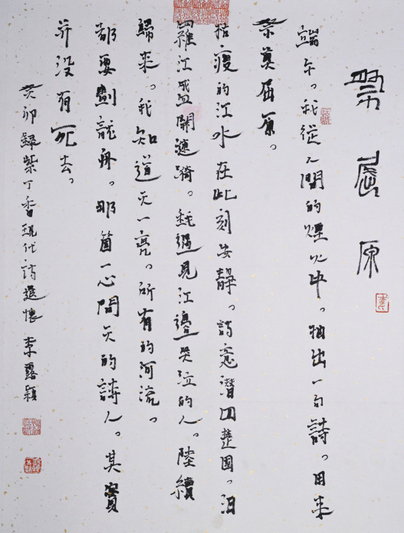 祭屈原
端午。我從人間的煙火中。抽出一句詩。用來
祭奠屈原。
枯瘦的江水在此刻安靜。詩意潛回楚國。汨
羅江盛開漣漪。我遇見江邊哭泣的人。陸續
歸來。我知道天一亮。所有的河流。
都要劃龍舟。那箇一心問天的詩人。其實
并沒有死去。
癸卯錄紫丁香現代詩選懷 李露穎